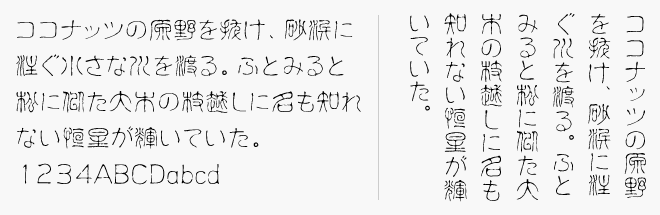 ココナッツの原野を抜け、砂浜に
注ぐ小さな川を渡る。ふとみると
松に似た大木の枝越しに名も知れ
ない恒星が輝いていた。
1234ABCDabcd
ココナッツの原野
を抜け、砂浜に注
ぐ川を渡る。ふと
みると松に似た大
木の枝越しに名も
知れない恒星が輝
いていた。